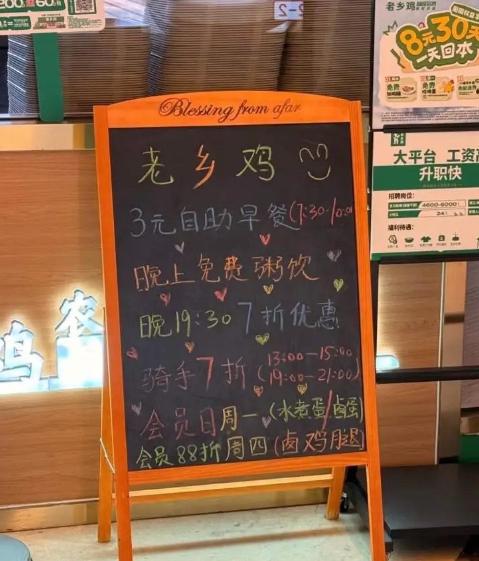 Blessing from afar
老乡鸡
3元自助早餐(7:30-10:00
晚上免费粥饮
晚19:30 7折优惠
骑手7折(13:00-15:00
19:00-21:00)
会员日周一(水煮蛋/卤蛋)
会员88折周四(卤鸡腿)
老乡鸡
8元30天
一天回本
免费
免费
大平台 工资高
升职快
招聘岗位:
4600-6000
福利待遇:
鸡